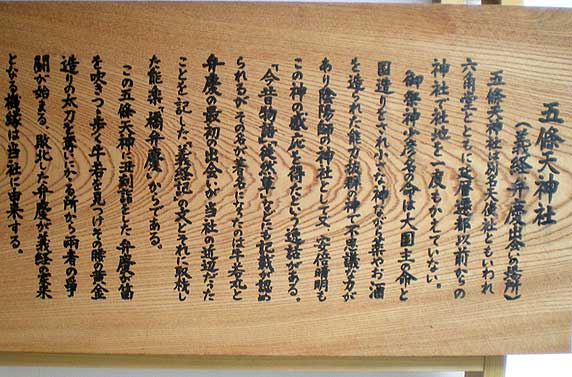 五條天神社
（義経・弁慶出会の場所）
五條天神社は別名天使社ともいわれ
六角堂とともに延暦遷都以前からの
神社で社地を一度もかえていない。
御祭神少彦名の命は大国主の命と
国造りをされ小さな神ながら薬やお酒
を造られた能力抜群の神で不思議な方が
あり陰陽師の神社として、安倍晴明も
この神の感応を得たという逸話がある。
「今昔物語」「徒然草」などにも記載が認め
られるがその名が著名になったのは牛若丸と
弁慶の最初の出会が当社の近辺だった
ことを記した「義経記」の文とそれに取材し
た能楽「橋弁慶」からである。
この五條天神に丑刻詣をした弁慶が笛
を吹きつつ歩く牛若を見つけその腰の黄金
造りの太刀を奪いかかる所から両者の争
闘が始まる、敗北した弁慶が義経の家来
となる機縁は当社に由来する。